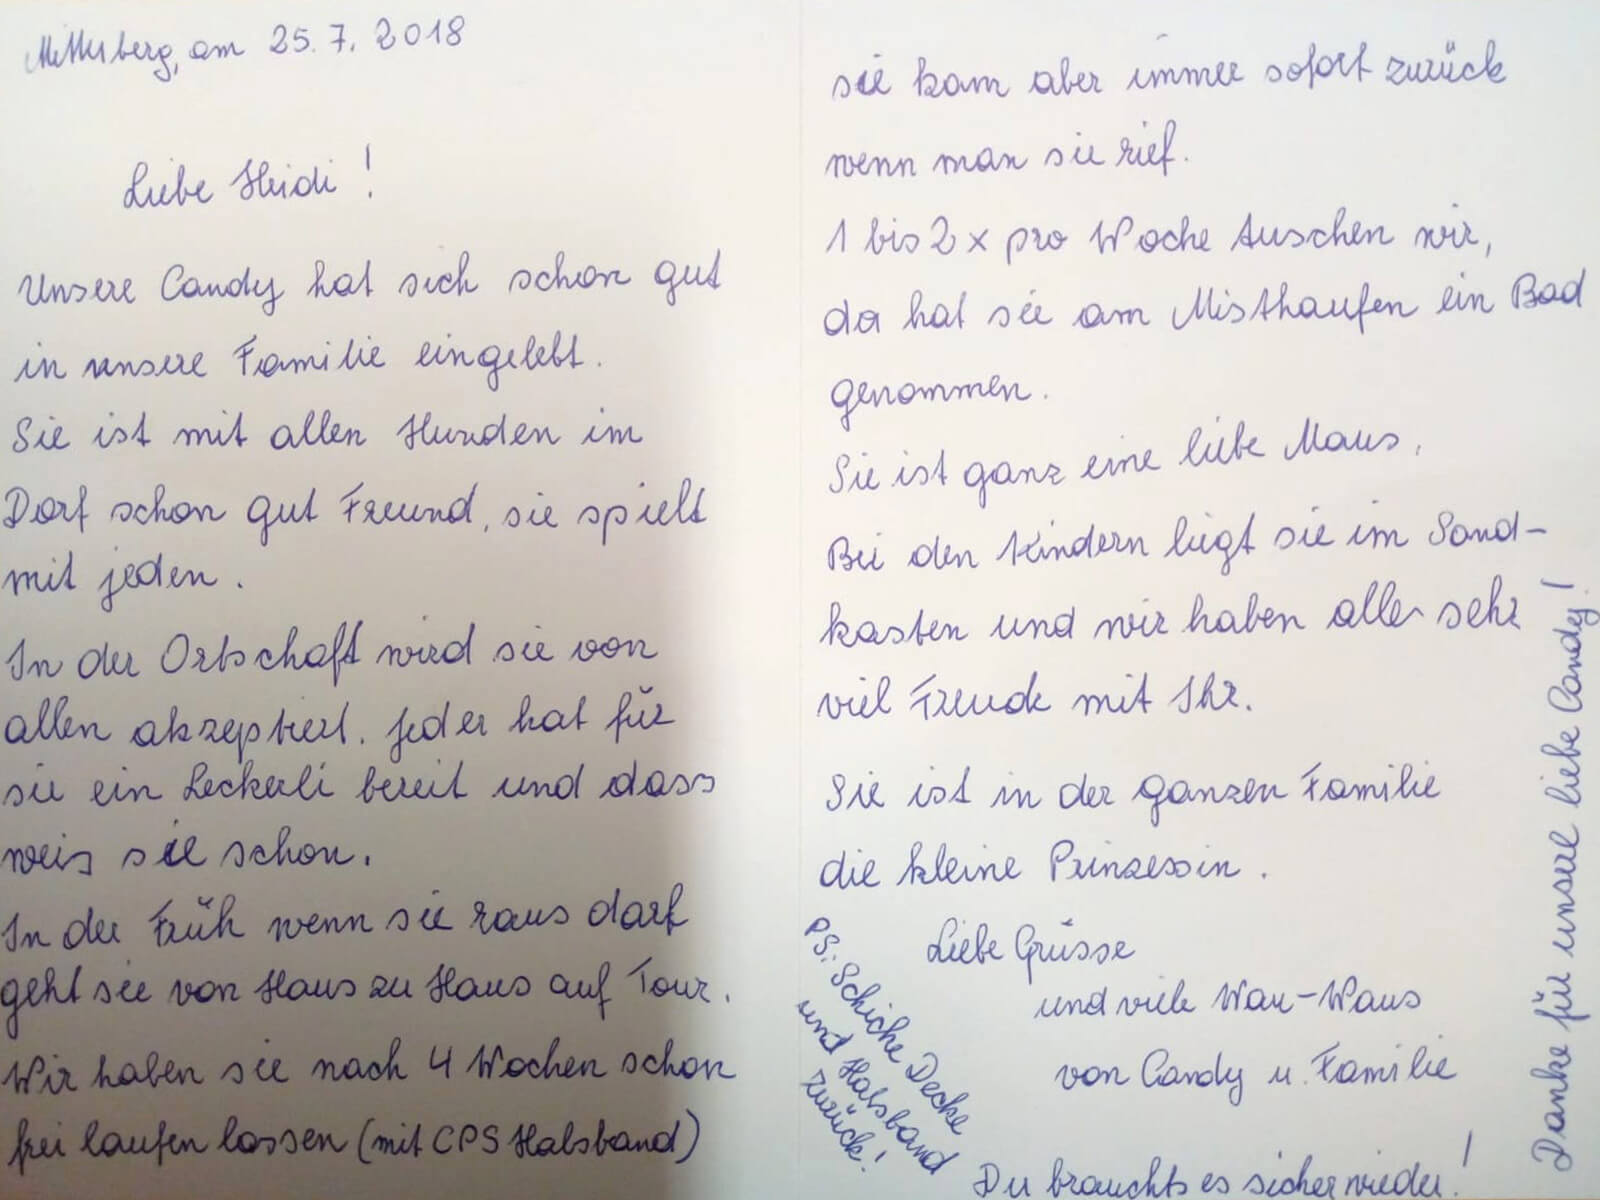 Mitterberg, am 25.7.2018
Liebe Heidi!
Unsere Candy hat sich schon gut
in unsere Familie eingelebt.
Sie ist mit allen Hunden im
Dorf schon gut Freund, sie spielt
mit jeden.
In der Ortschaft wird sie von
allen akzeptiert. Jeder hat für
sie ein Leckerli bereit und dass
weis sie schon.
In der Früh wenn sie raus darf
geht sie von Haus zu Haus auf Tour.
Wir haben sie nach 4 Wochen schon
frei laufen lassen (mit CPS Halsband)
sie kam aber immer sofort zurück
wenn man sie rief.
1 bis 2 x pro Woche duschen wir,
da hat sie am Misthaufen ein Bad
genommen.
Sie ist ganz eine liebe Maus.
Bei den Kindern liegt sie im Sand-
kasten und wir haben alle sehr
viel Freude mit Ihr.
Sie ist in der ganzen Familie
die kleine Prinzessin.
Liebe Grüsse
und viele Wau-Waus
von Candy u. Familie
PS: Schicke Decke
und Halsband
zurück!
Du brauchts es sicher wieder!
Danke für unsere liebe Candy!